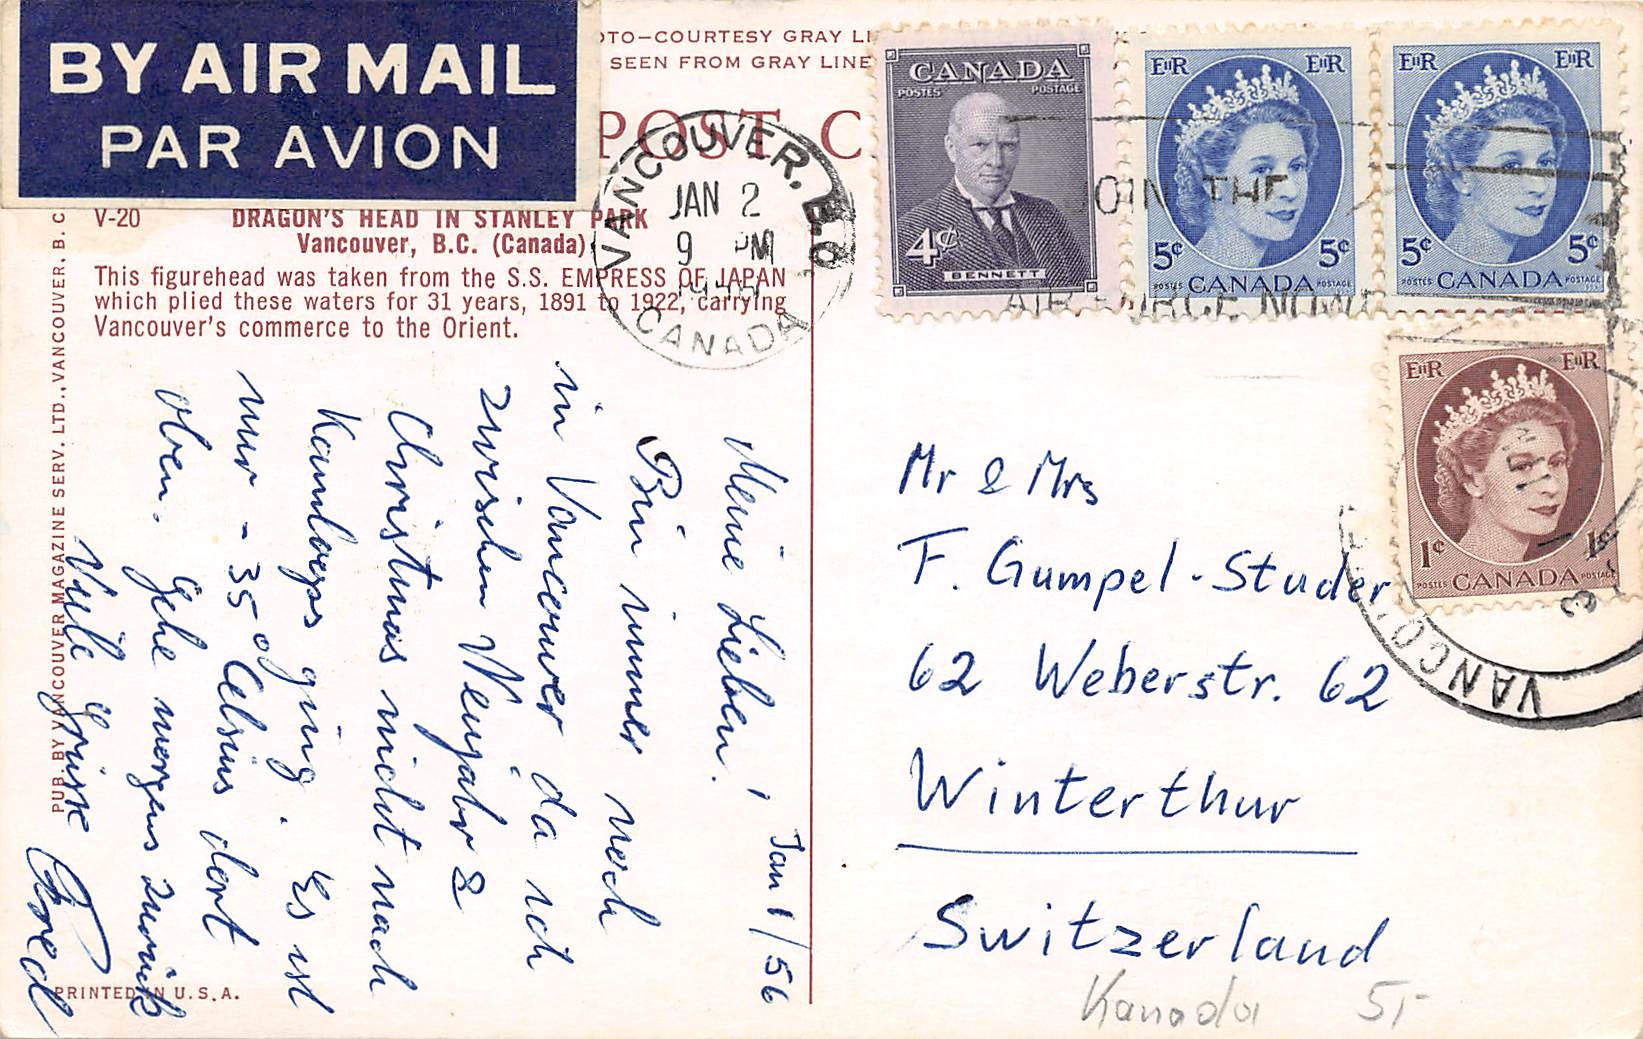 BY AIR MAIL
PAR AVION
OTO—COURTESY GRAY LI
SEEN FROM GRAY LINE
POST C
V-20
DRAGON'S HEAD IN STANLEY PARK
Vancouver, B.C. (Canada)
This figurehead was taken from the S.S. EMPRESS OF JAPAN
which plied these waters for 31 years, 1891 to 1922, carrying
Vancouver's commerce to the Orient.
PUB. BY VANCOUVER MAGAZINE SERV. LTD., VANCOUVER. B. C
PRINTED IN U.S.A.
VANCOUVER. B.C
JAN 2
9 PM
CANADA
CANADA
POSTES POSTAGE
4¢
BENNETT
EIIR EIIR
5¢ 5¢
POSTES CANADA POSTAGE
EIIR EIIR
5¢ 5¢
POSTES CANADA POSTAGE
EIIR EIIR
1¢ 1¢
POSTES CANADA POSTAGE
JOIN THE
AIR FORCE NOW!
VANCO
Jan 1/56
Meine Lieben,
Bin immer noch
in Vancouver da ich
zwischen Neujahr &
Christmas nicht nach
Kamloops ging. Es ist
nur - 35° Celsius dort
oben. Gehe morgen zurück
Viele Grüsse
Fred
Mr & Mrs
F. Gumpel-Studer
62 Weberstr. 62
Winterthur
Switzerland
Kanada 5,-